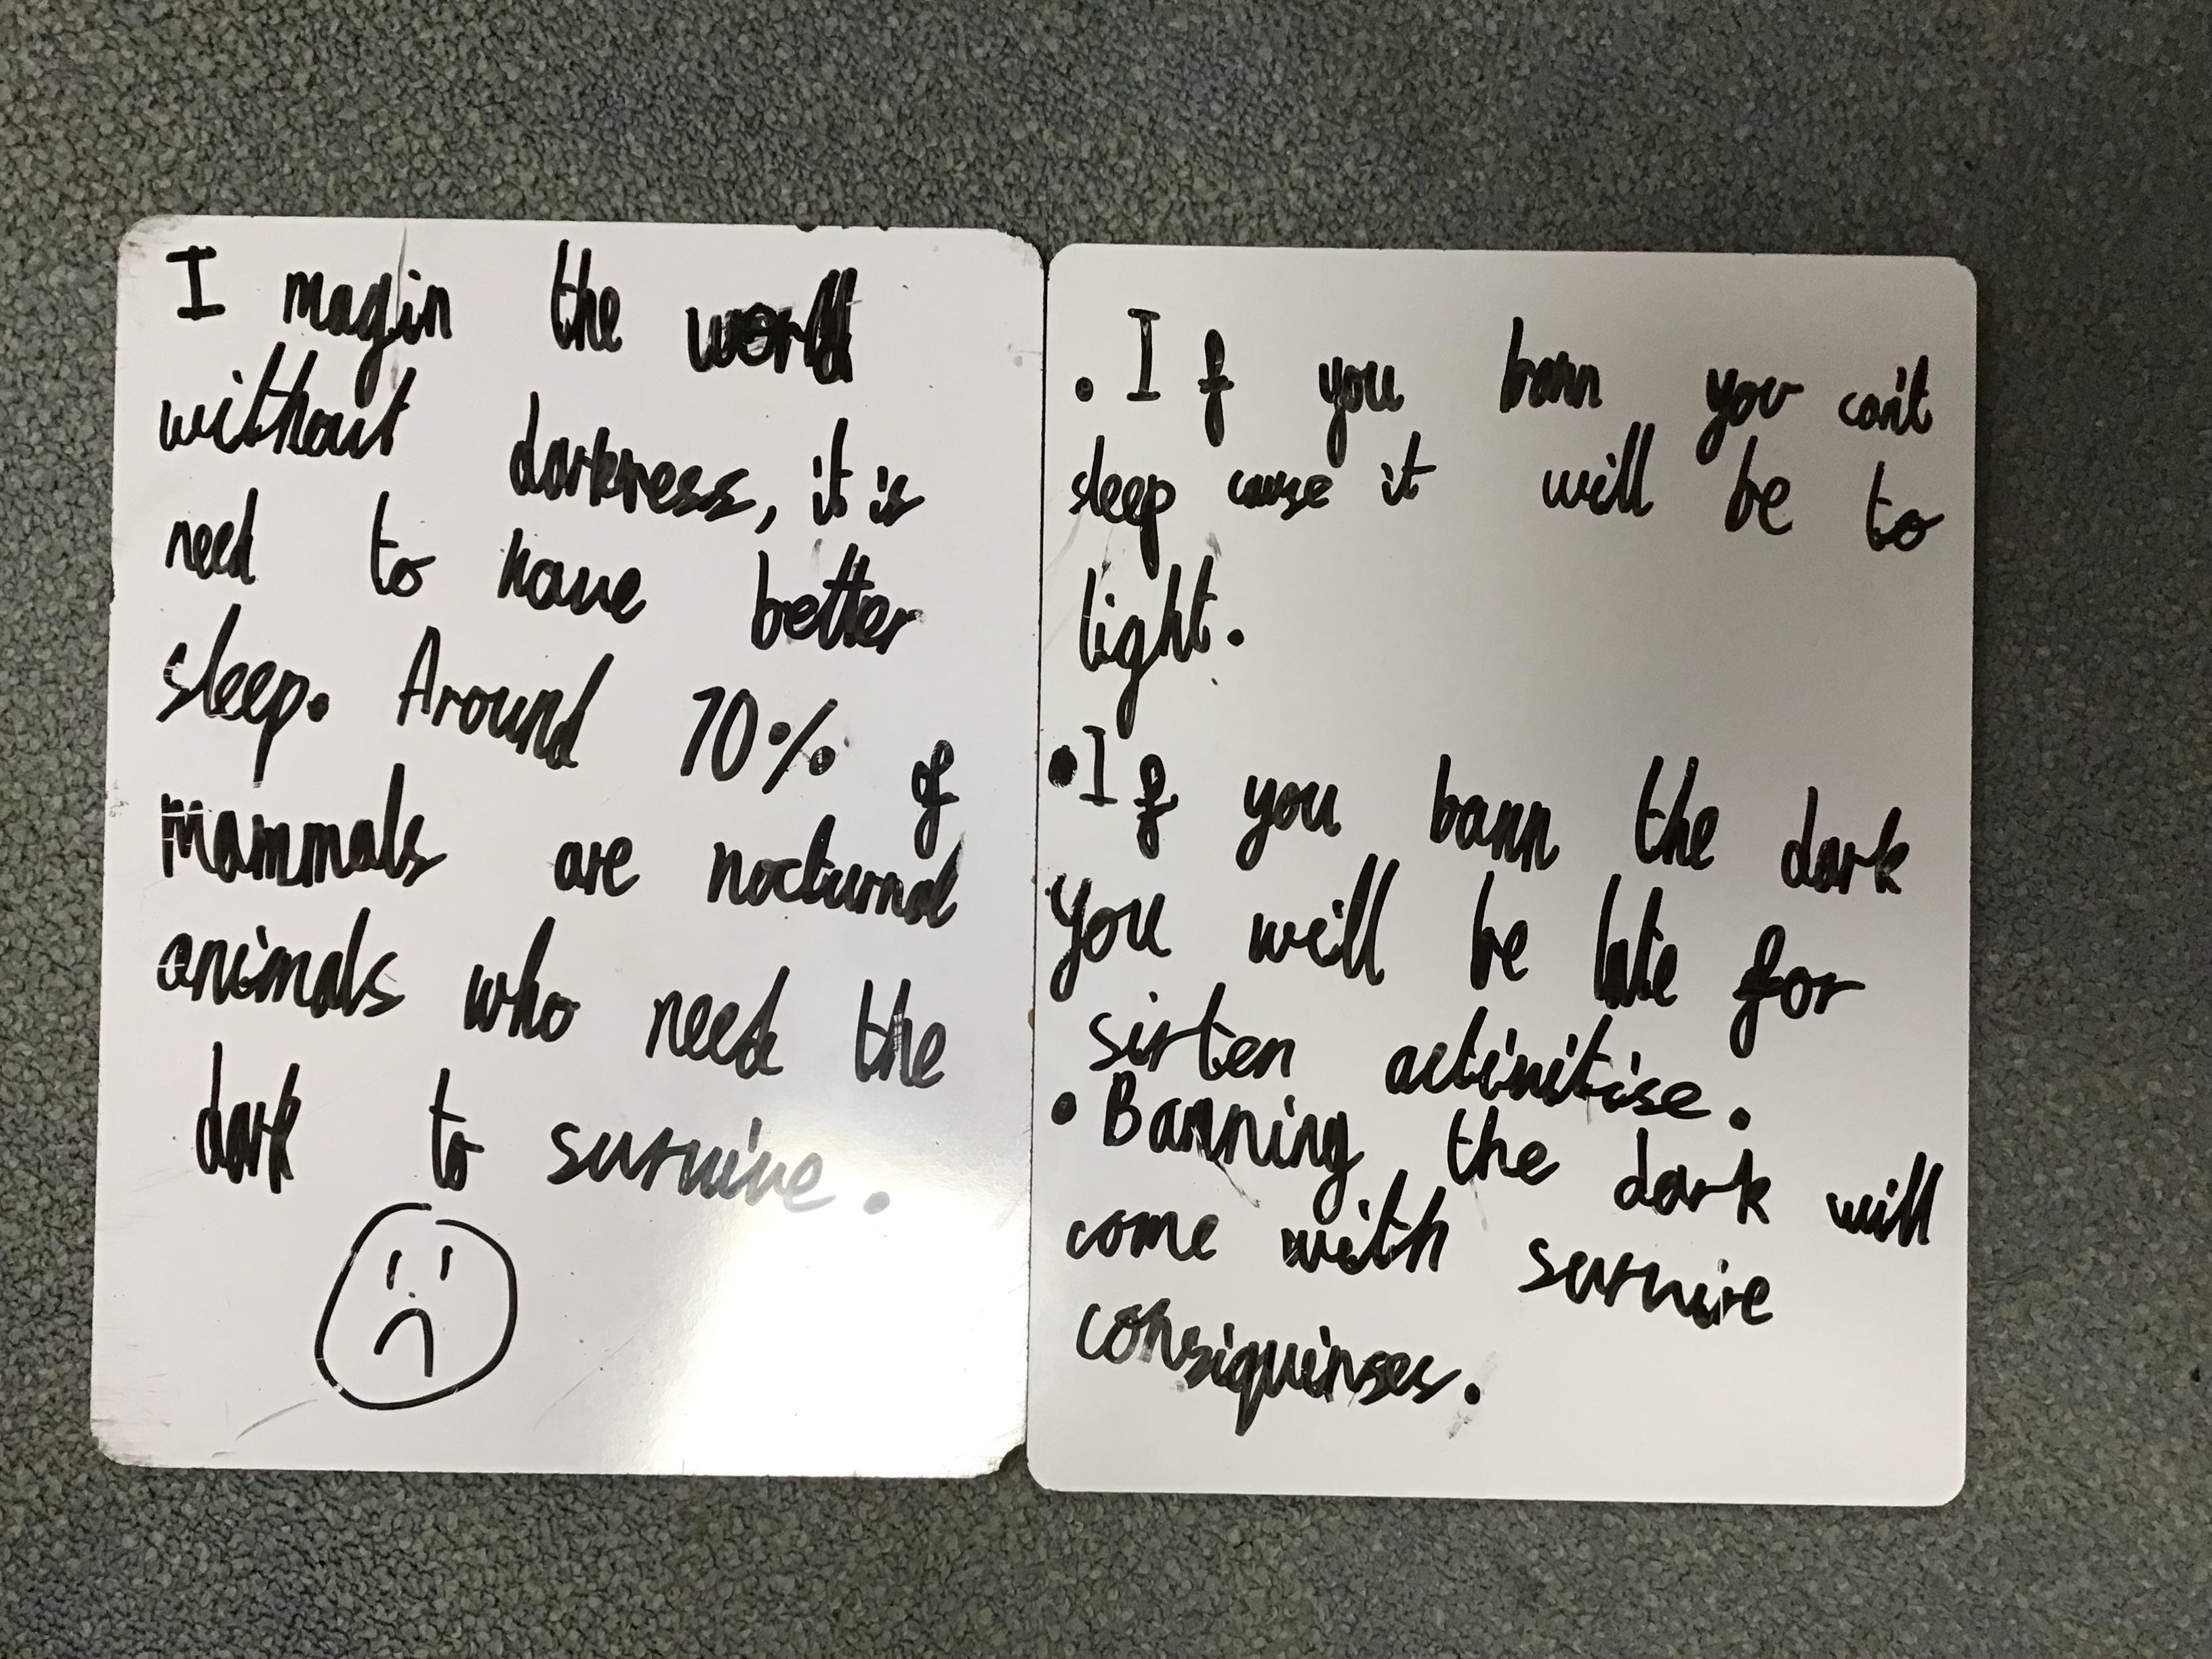 I magin the world
without darkness, it is
need to have better
sleep. Around 70% of
mammals are nocturnal
animals who need the
dark to survive.
. If you bann you can't
sleep cause it will be to
light.
• If you bann the dark
you will be late for
sirten activitise.
• Banning the dark will
come with survire
consiquinses.